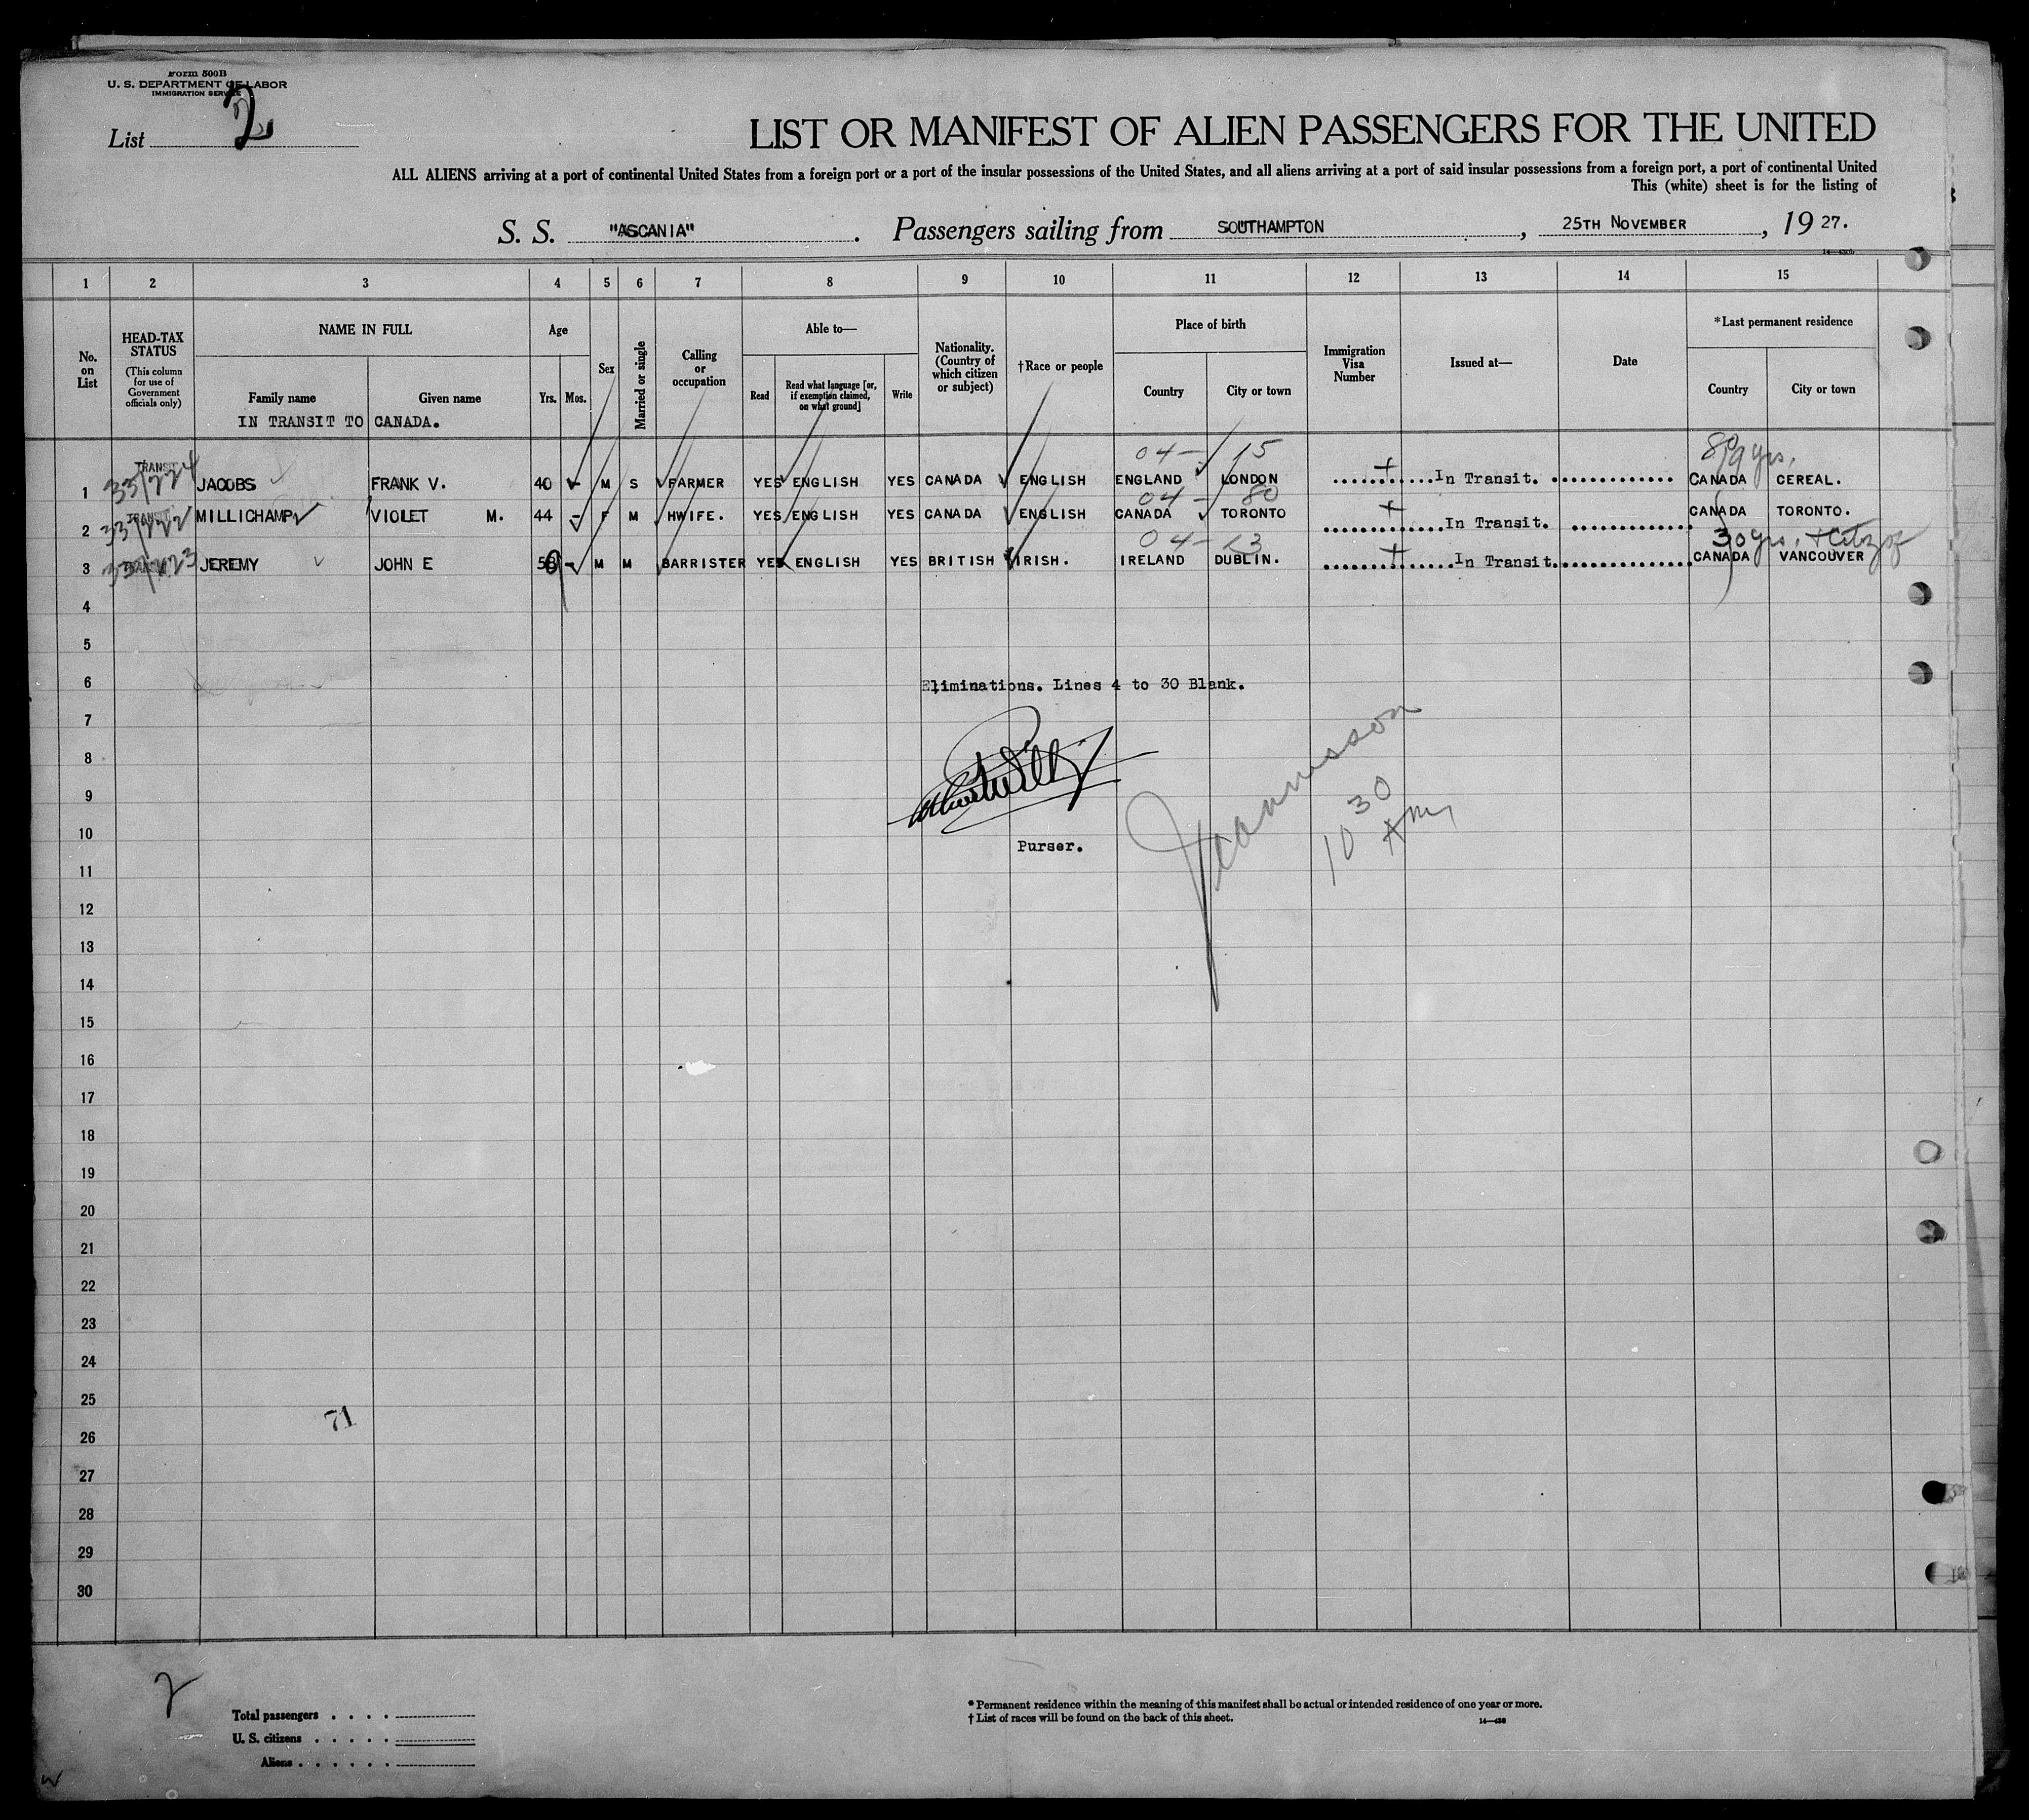 Form 500B
U. S. DEPARTMENT OF LABOR
IMMIGRATION SERVICE
List 2
LIST OR MANIFEST OF ALIEN PASSENGERS FOR THE UNITED
ALL ALIENS arriving at a port of continental United States from a foreign port or a port of the insular possessions of the United States, and all aliens arriving at a port of said insular possessions from a foreign port, a port of continental United
This (white) sheet is for the listing of
S. S. "ASCANIA". Passengers sailing from SOUTHAMPTON, 25TH NOVEMBER, 1927.
1 2 3 4 5 6 7 8 9 10 11 12 13 14 15
No. on List
HEAD-TAX STATUS
(This column for use of Government officials only)
NAME IN FULL
Family name
Given name
Age
Yrs. Mos.
Sex
Married or single
Calling or occupation
Able to—
Read
Read what language [or, if exemption claimed, on what ground]
Write
Nationality. (Country of which citizen or subject)
†Race or people
Place of birth
Country
City or town
Immigration Visa Number
Issued at—
Date
*Last permanent residence
Country
City or town
IN TRANSIT TO CANADA.
04- 15
1 TRANSIT JACOBS FRANK V. 40 - M S FARMER YES ENGLISH YES CANADA ENGLISH ENGLAND LONDON In Transit. CANADA CEREAL.
04- 80
2 TRANSIT MILLICHAMP VIOLET M. 44 - F M HWIFE. YES ENGLISH YES CANADA ENGLISH CANADA TORONTO In Transit. CANADA TORONTO.
04-13 30 yrs.
3 JEREMY JOHN E - M M BARRISTER YES ENGLISH YES BRITISH IRISH. IRELAND DUBLIN. In Transit. CANADA VANCOUVER
4
5
6 Eliminations. Lines 4 to 30 Blank.
7
8
9
10 10 30 AM
Purser.
11
12
13
14
15
16
17
18
19
20
21
22
23
24
25
71
26
27
28
29
30
2
Total passengers
U. S. citizens
Aliens
* Permanent residence within the meaning of this manifest shall be actual or intended residence of one year or more.
† List of races will be found on the back of this sheet.